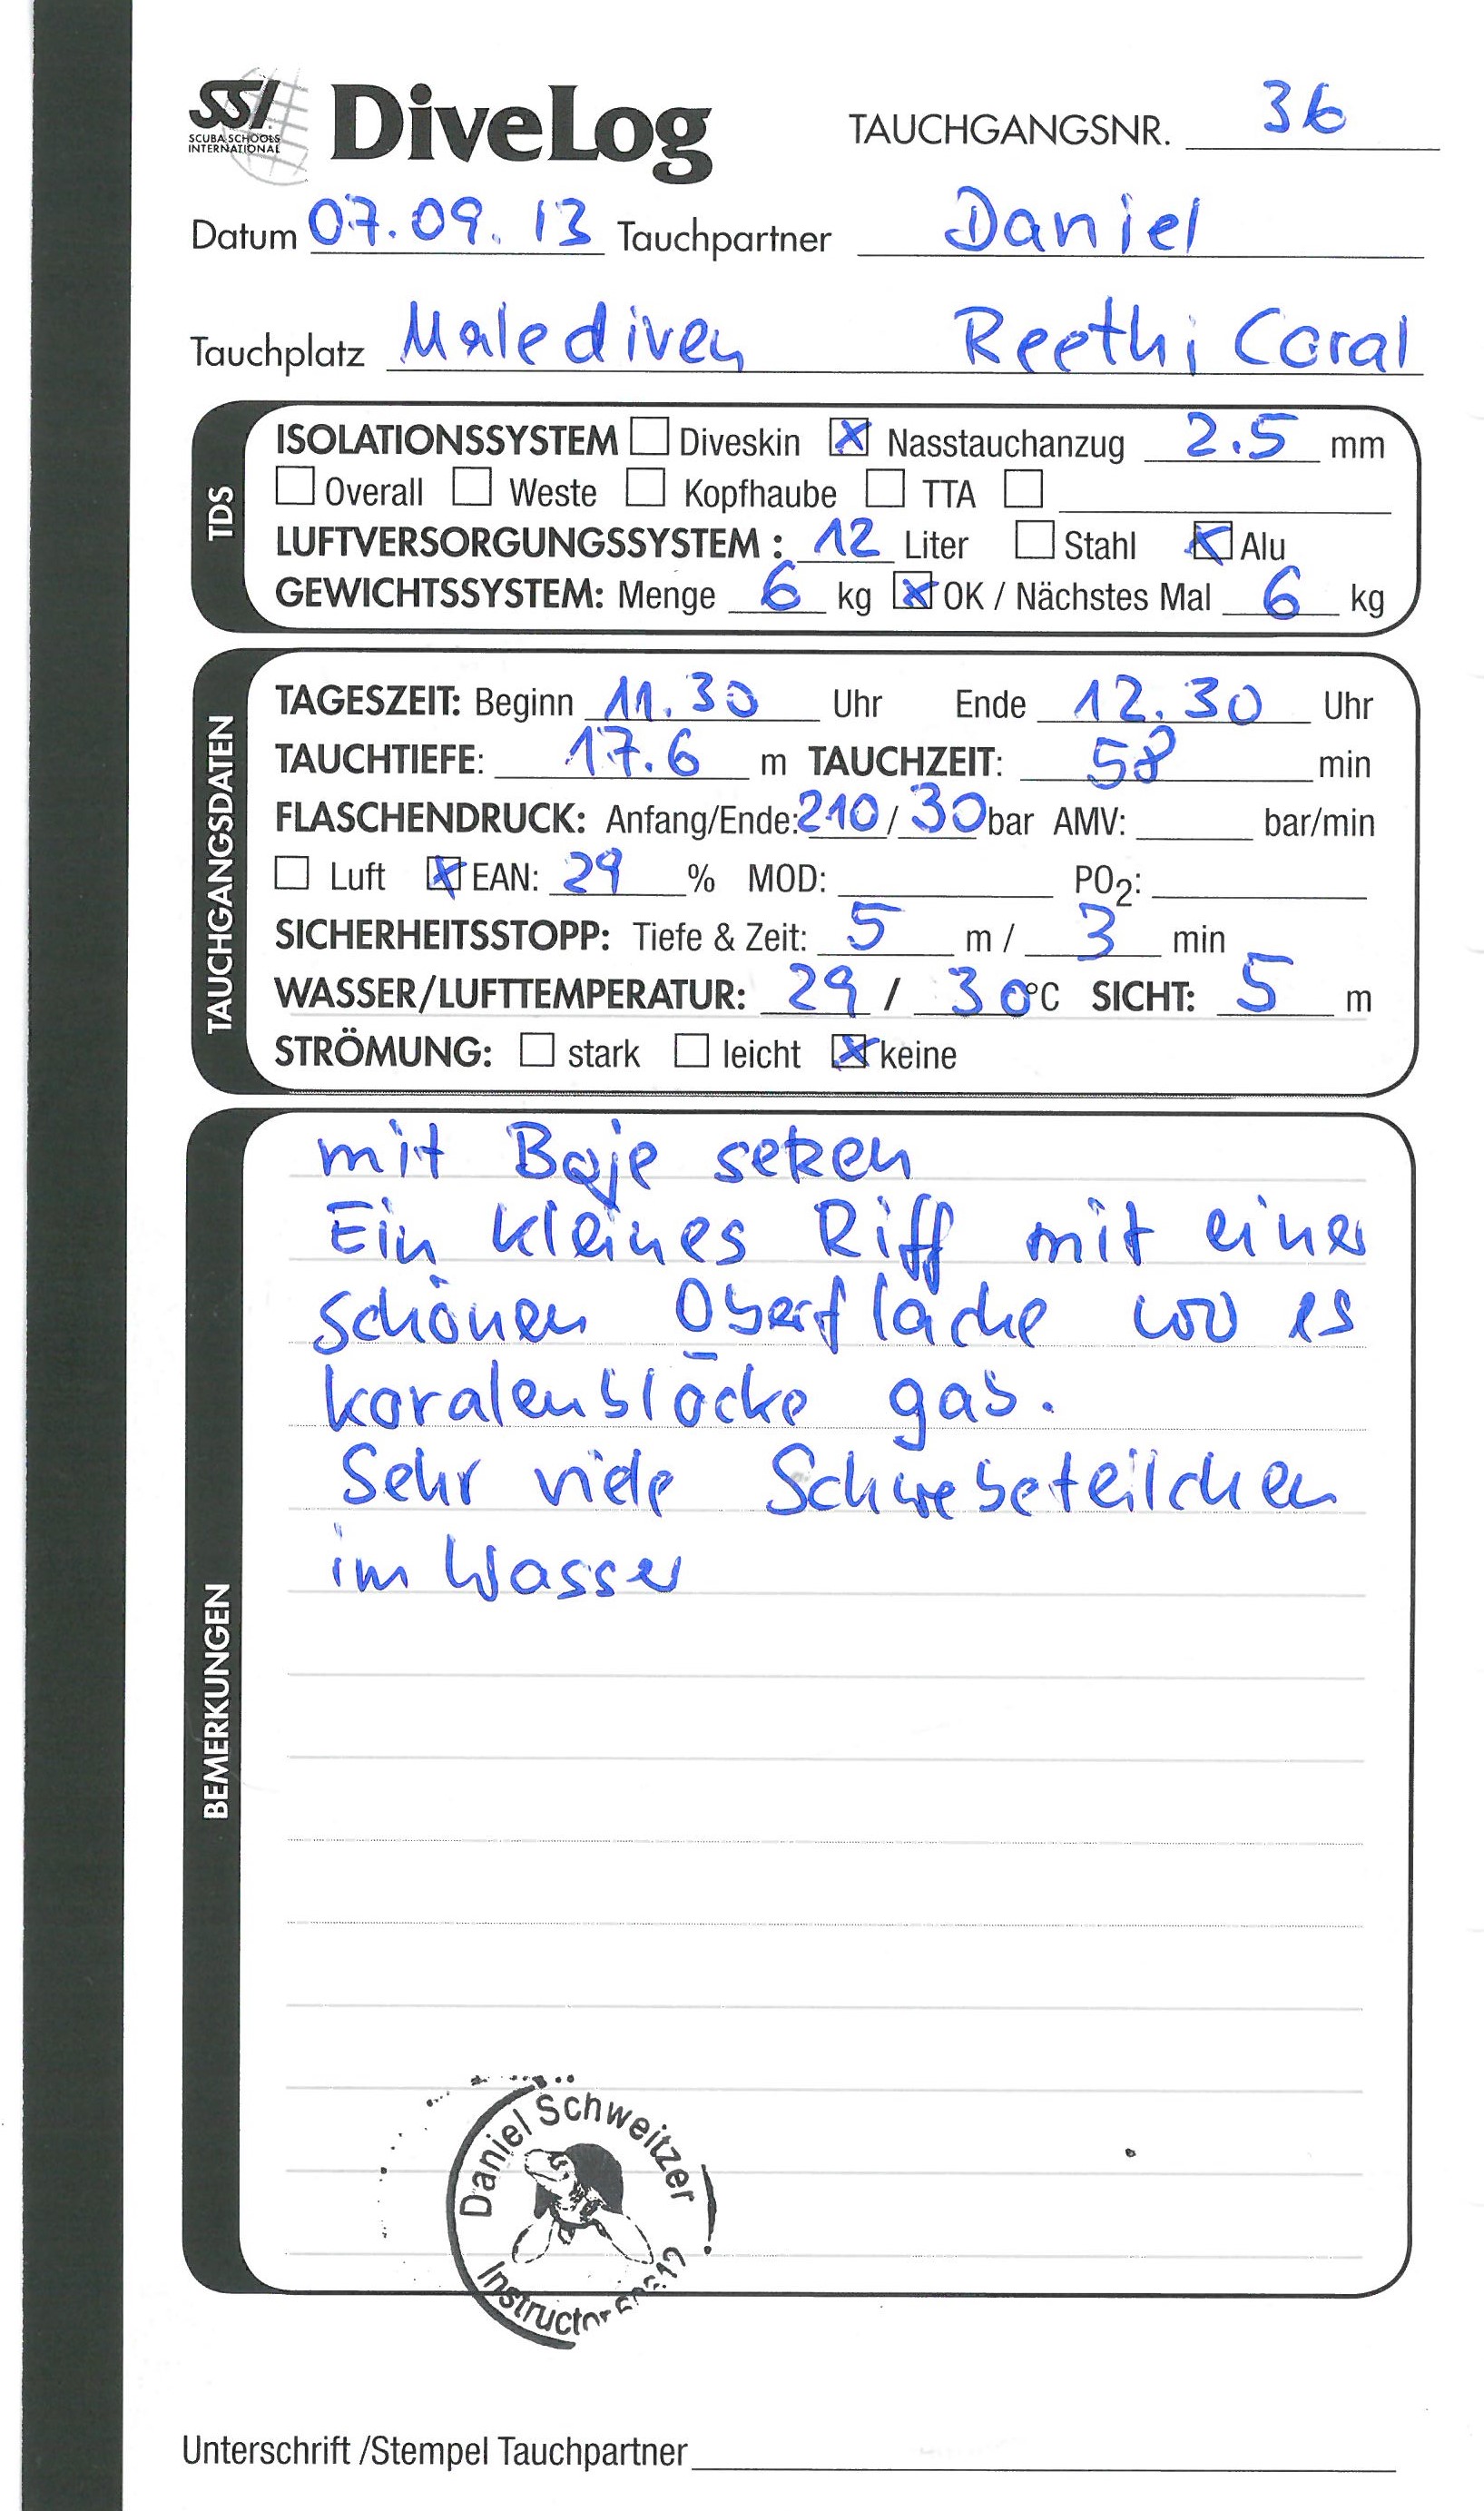 SSI DiveLog TAUCHGANGSNR. 36
SCUBA SCHOOLS
INTERNATIONAL
Datum 07.09.13 Tauchpartner Daniel
Tauchplatz Malediven Reethi Coral
TDS
ISOLATIONSSYSTEM Diveskin Nasstauchanzug 2.5 mm
Overall Weste Kopfhaube TTA
LUFTVERSORGUNGSSYSTEM: 12 Liter Stahl Alu
GEWICHTSSYSTEM: Menge 6 kg OK / Nächstes Mal 6 kg
TAUCHGANGSDATEN
TAGESZEIT: Beginn 11.30 Uhr Ende 12.30 Uhr
TAUCHTIEFE: 17.6 m TAUCHZEIT: 58 min
FLASCHENDRUCK: Anfang/Ende: 210/30 bar AMV: bar/min
Luft EAN: 29 % MOD: PO2:
SICHERHEITSSTOPP: Tiefe & Zeit: 5 m / 3 min
WASSER/LUFTTEMPERATUR: 29 / 30 °C SICHT: 5 m
STRÖMUNG: stark leicht keine
BEMERKUNGEN
mit Boje setzen
Ein kleines Riff mit einer
schönen Oberfläche wo es
koralenblöcke gab.
Sehr viele Schwebeteilchen
im Wasser
Daniel Schweitzer
Instructor
Unterschrift /Stempel Tauchpartner